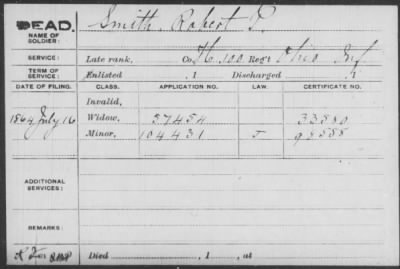 DEAD. Smith, Robert P.
NAME OF
SOLDIER:
SERVICE: Late rank, Co. H, 100 Reg't Ohio Inf
TERM OF
SERVICE: Enlisted , 1 Discharged , 1
DATE OF FILING. CLASS. APPLICATION NO. LAW. CERTIFICATE NO.
Invalid,
1864 July 16 Widow, 57454 33880
Minor, 104431
ADDITIONAL
SERVICES:
REMARKS:
Died , 1 , at